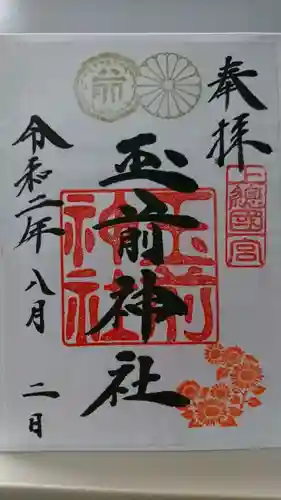 奉拝
上総國一宮
玉前神社
玉前神社
令和二年八月二日
前